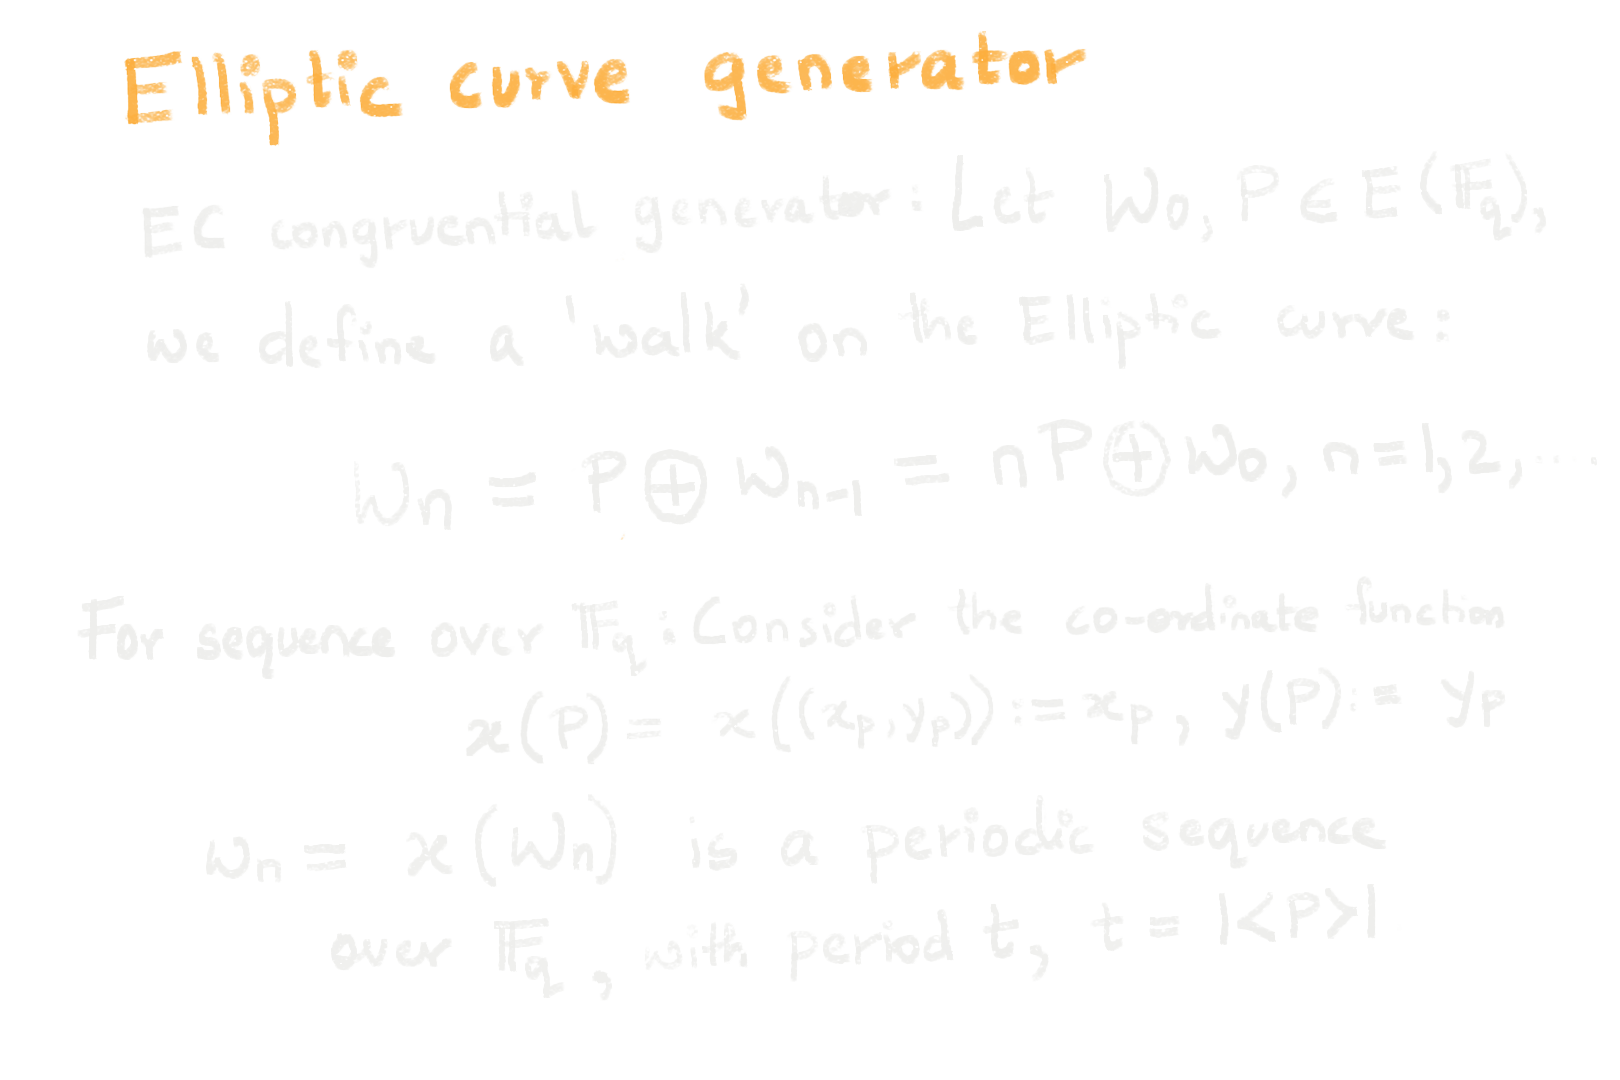 Elliptic curve generator
EC congruential generator: Let W₀, P ∈ E(𝔽q),
we define a 'walk' on the Elliptic curve:
Wn = P ⊕ Wn-1 = nP ⊕ W₀, n=1,2,....
For sequence over 𝔽q: Consider the co-ordinate function
x(P) = x((xp, yp)) := xp, y(P) := yp
wn = x(Wn) is a periodic sequence
over 𝔽q, with period t, t = |<P>|